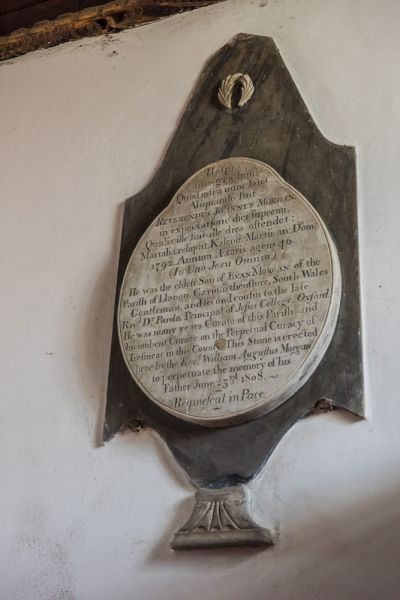 Hospes
Quod
Aliquando fuit
REVERENDUS JOANNES MORGAN,
in expectatione diei supremi.
Qualis ille fuit ille dies ostendet;
Natalia reliquit, Kalend. Martii an: Dom:
1792. Annum Ætatis agens 46.
(In Uno Jesu Omnia)
He was the eldest Son of EVAN MORGAN of the
Parish of Llanon, Carmarthenshire, South-Wales
Gentleman, and second cousin to the late
Revd. Dr. Pardo, Principal of Jesus College, Oxford.
He was many years Curate of this Parish, and
Incumbent Curate on the Perpetual Curacy of
in this County. This Stone is erected
here by the Revd. William Augustus Morgan
to perpetuate the memory of his
Father June 23rd 1808.~
Requiescat in Pace.